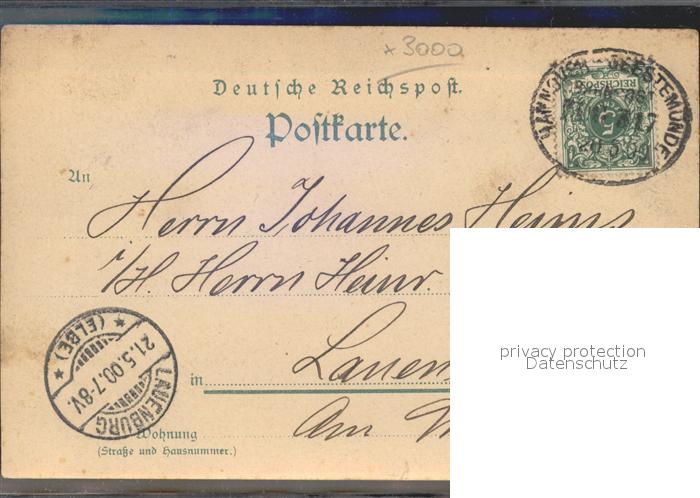 x 3000
Deutsche Reichspost.
Postkarte.
HANNOVER GEESTEMÜNDE
REICHSPOST
5
An
Herrn Johannes Heins
i/H. Herrn Heinr.
privacy protection
Datenschutz
LAUENBURG
* (ELBE) *
21.5.00.7-8V.
in Lauen
Wohnung
(Straße und Hausnummer.)
Am